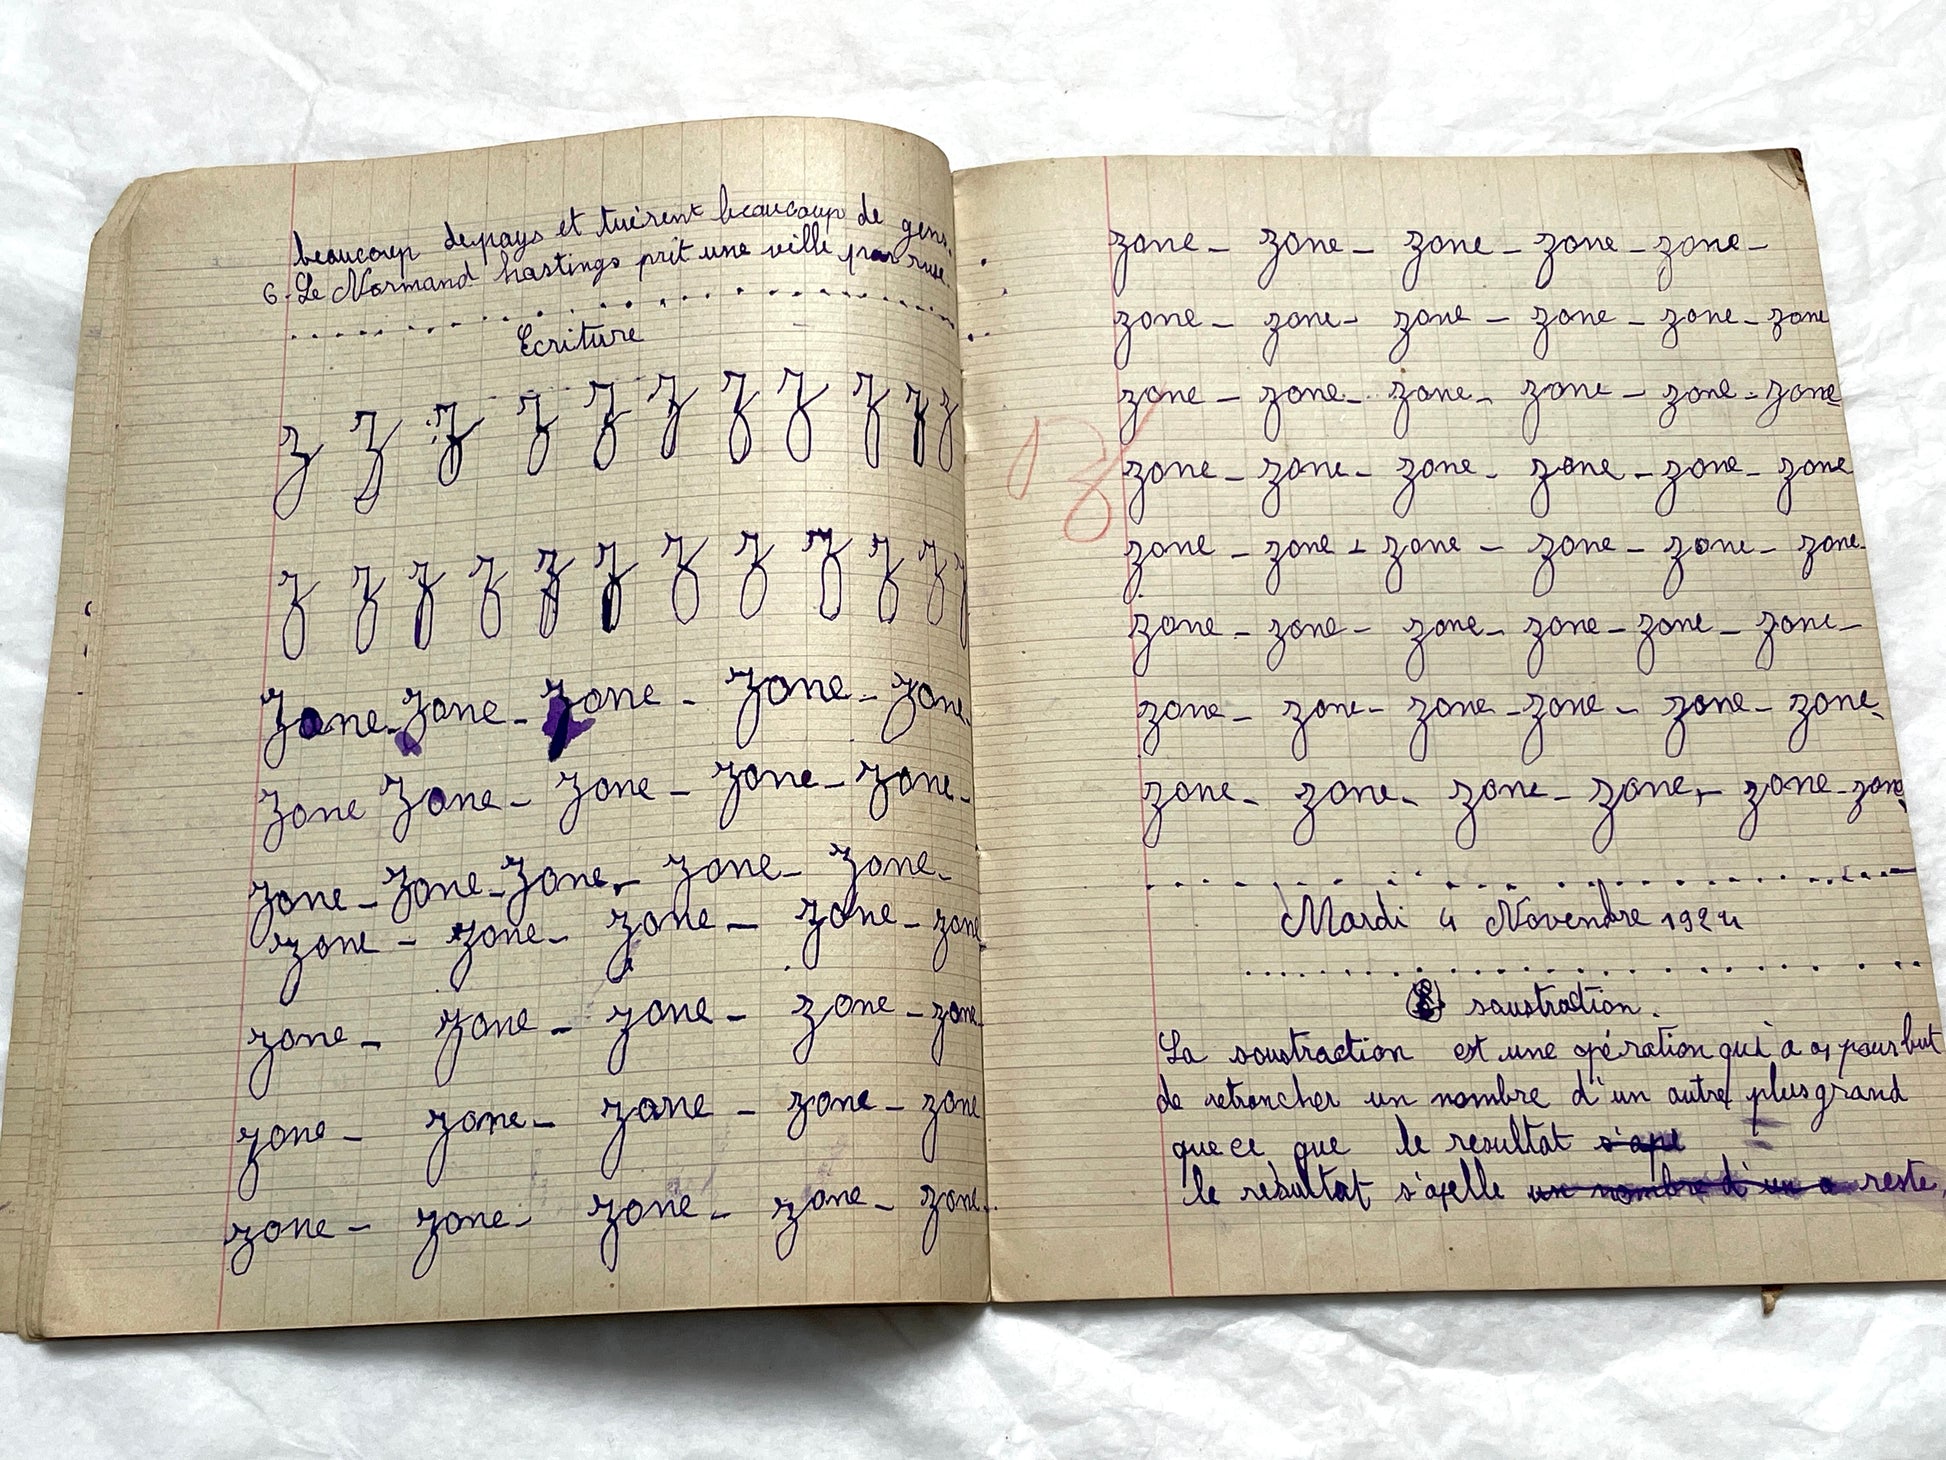 beaucoup de pays et tuèrent beaucoup de gens.
6. Le Normand hastings prit une ville par ruse.
Ecriture
z z z z z z z z z z z
z z z z z z z z z z z z
zone - zone - zone - zone - zone
zone zone - zone - zone - zone -
zone - zone - zone - zone - zone -
zone - zone - zone - zone - zone
zone - zone - zone - zone - zone
zone - zone - zone - zone - zone
zone - zone - zone - zone - zone
zone - zone - zone - zone - zone -
zone - zone - zone - zone - zone - zone
zone - zone - zone - zone - zone - zone
zone - zone - zone - zone - zone - zone
zone - zone - zone - zone - zone - zone
zone - zone - zone - zone - zone - zone -
zone - zone - zone - zone - zone - zone
zone - zone - zone - zone - zone - zone
Mardi 4 Novenbre 1924
soustraction.
La soustraction est une opération qui à pour but
de retrancher un nombre d'un autre plus grand
que ce que le resultat s'ape
le résultat s'apelle un nombre d'un a reste